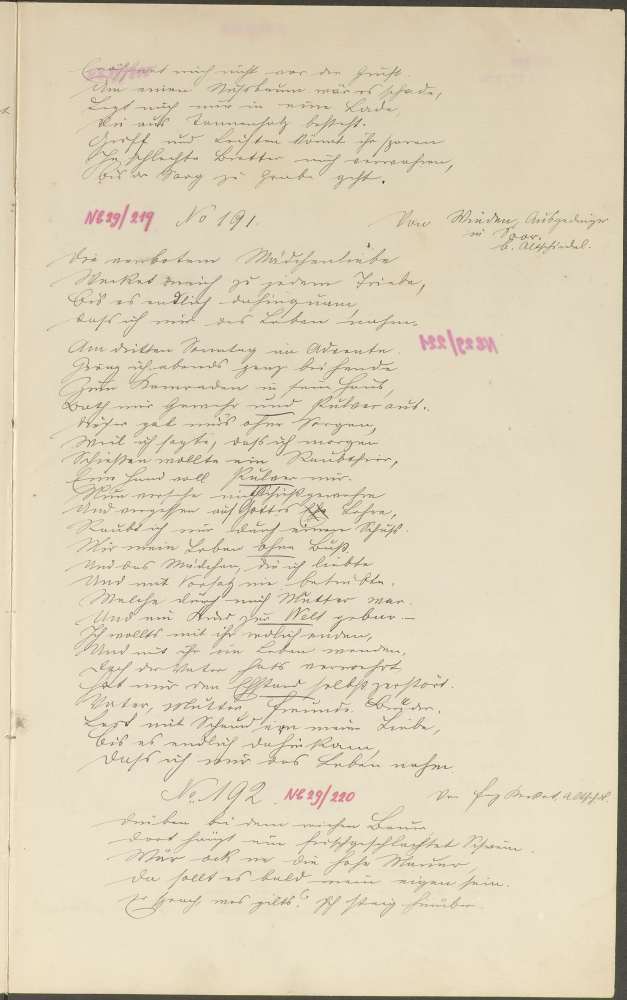 mich nicht vor der Gruft.
Um einen Nussbaum wär es schade,
Legt mich nur in eine Lade,
Die aus Tannenholz besteht.
und Leisten könnt ihr sparen
schlechte Bretter mich verwahren,
Bis der Sarg zu Grabe geht.
NE29/219 No 191. Von Winden, Ausgedinger
in Soor.
b. Altschindel.
Die verbotene Mädchenliebe
Wecket mich zu jedem Triebe,
Bis es endlich dahinkam,
Dass ich mir das Leben nahm.
NE29/221
Am dritten Sonntag im Advente
Ging ich abends ganz behende
Zum Kameraden in sein Haus,
Bath mir Gewehr und Pulver aus.
Dieser gab mirs ohne Sorgen,
Weil ich sagte, dass ich morgen
Schiessen wollte ein Raubthier,
Eine Hand voll Pulver mir.
Nun
Und vergessen auf Gottes Lehre,
Raubt ich mir durch einen Schuss
Mir mein Leben ohne Buss.
Und das Mädchen, die ich liebte
Und mit Vorsatz nie betrübte,
Welche durch mich Mutter war
Und ein Kind zur Welt gebar. –
Ich wollts mit ihr redlich enden,
Und mit ihr ein Leben
Doch der Vater hats verwehrt
Hat mir den Ehstand selbst zerstört.
Vater, Mutter, Freunde, Brüder,
mein Liebe,
Bis es endlich dahinkam,
Dass ich mir das Leben nahm.
No 192. NE29/220 Von
Drüben bei dem Baum
Dort hängt ein frischgeschlachtet Schwein.
Wär ock ne die hohe Mauer,
Da sollt es bald mein eigen sein.
Er sprach was gilts? Ich steig hinüber